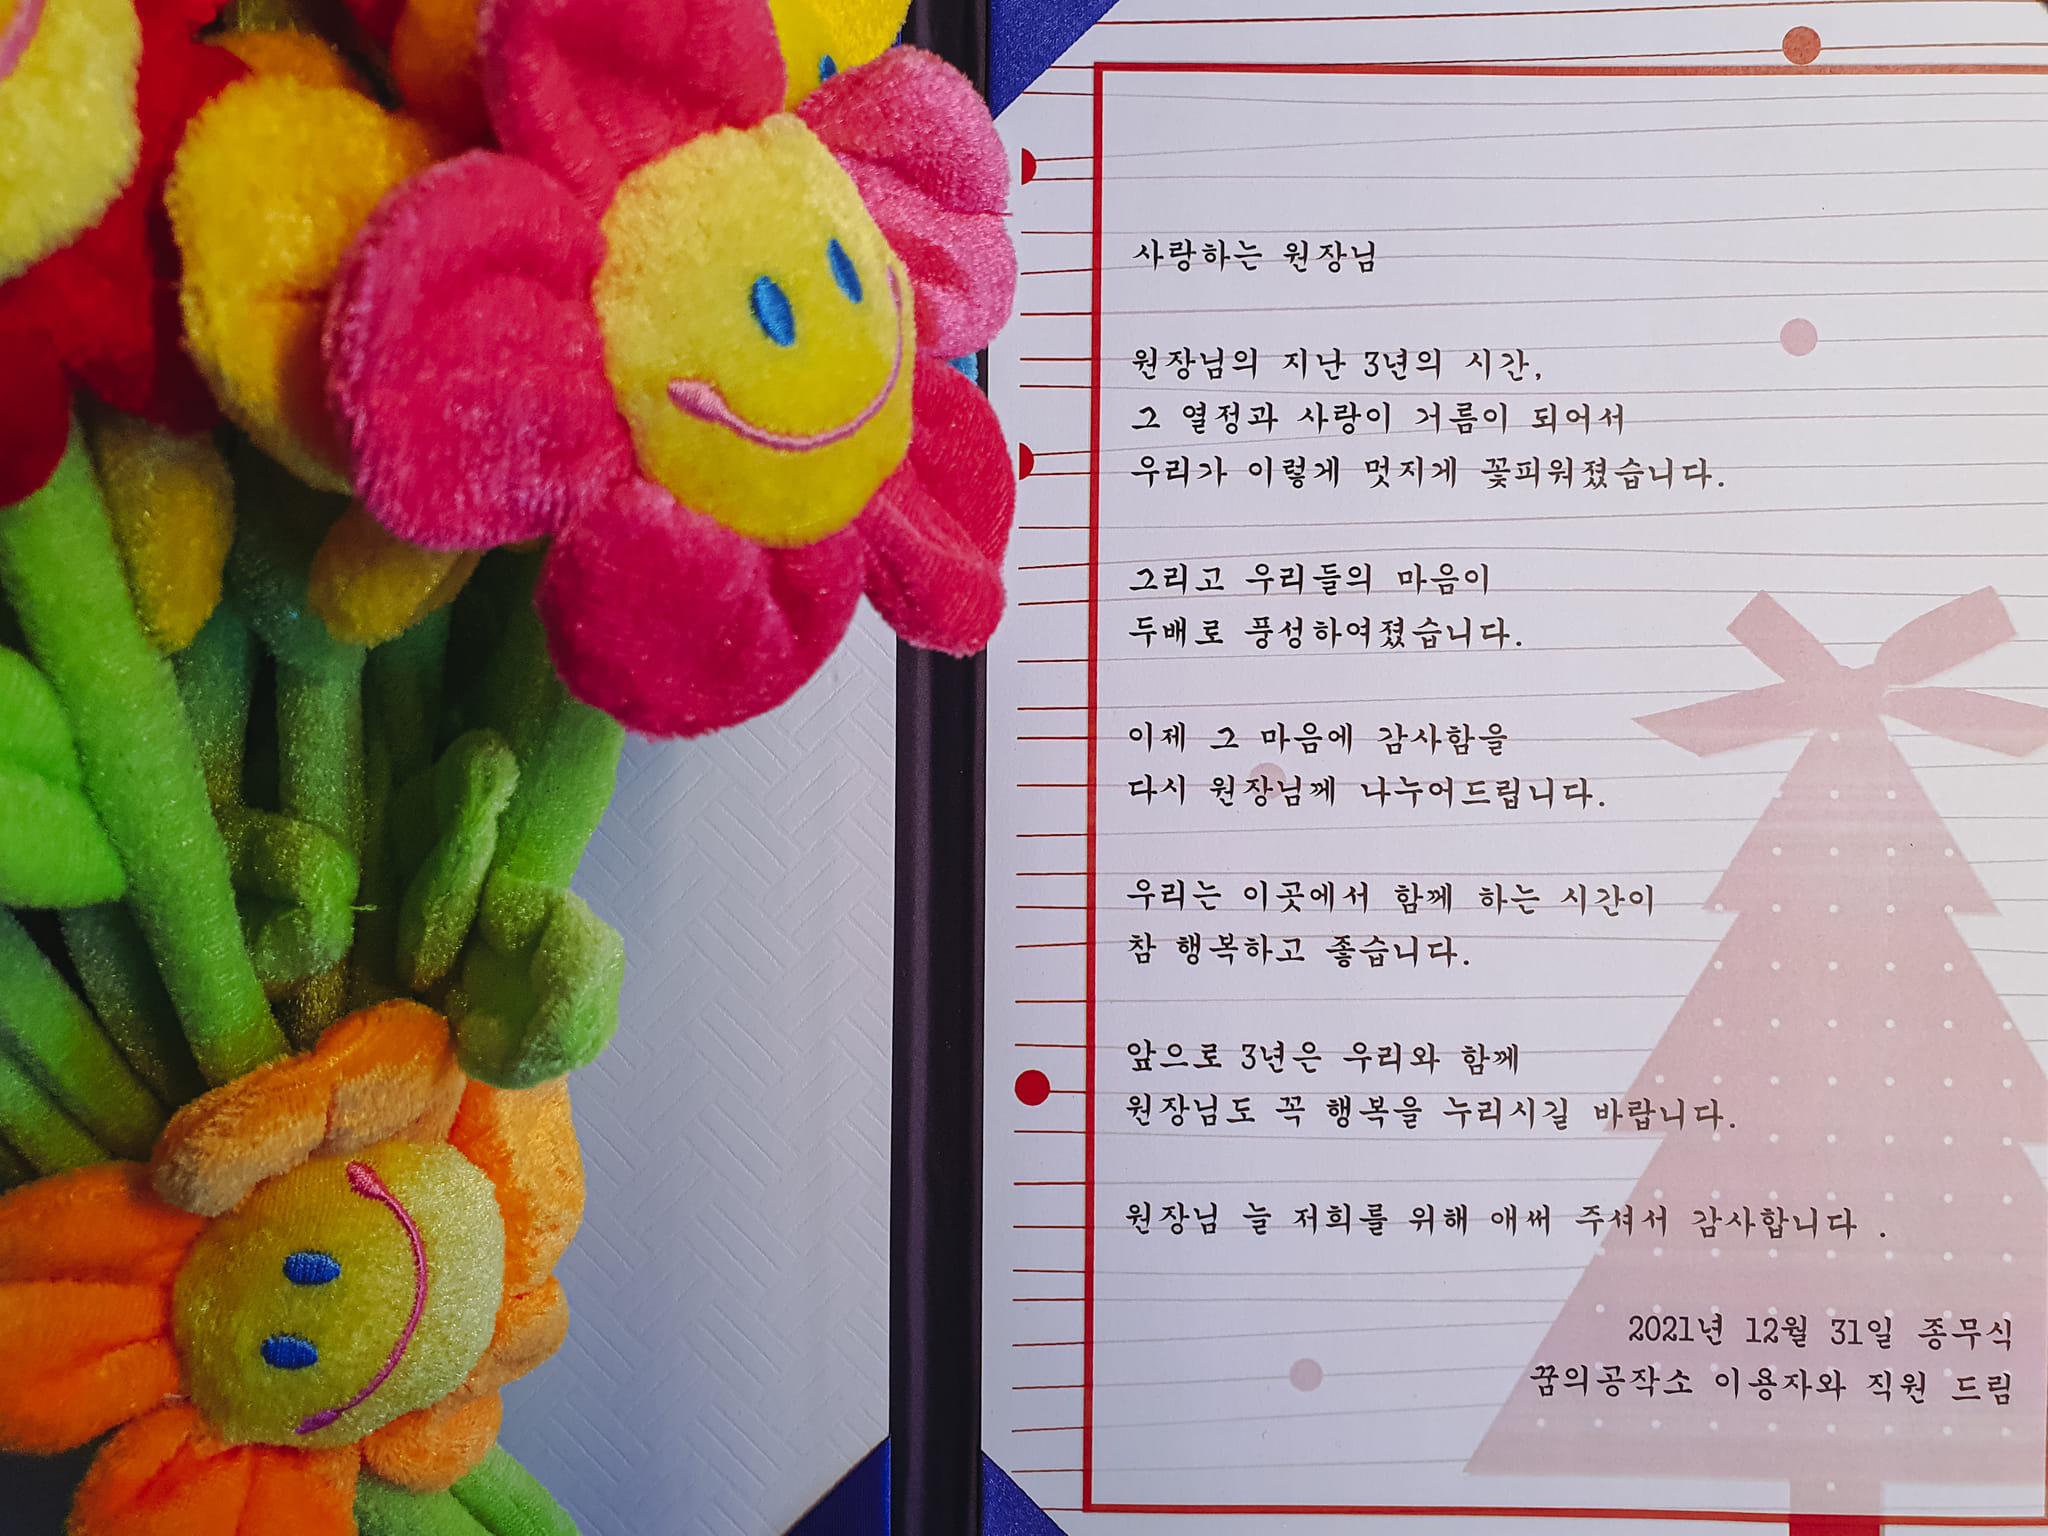 사랑하는 원장님
원장님의 지난 3년의 시간,
그 열정과 사랑이 거름이 되어서
우리가 이렇게 멋지게 꽃피워졌습니다.
그리고 우리들의 마음이
두배로 풍성하여졌습니다.
이제 그 마음에 감사함을
다시 원장님께 나누어드립니다.
우리는 이곳에서 함께 하는 시간이
참 행복하고 좋습니다.
앞으로 3년은 우리와 함께
원장님도 꼭 행복을 누리시길 바랍니다.
원장님 늘 저희를 위해 애써 주셔서 감사합니다 .
2021년 12월 31일 종무식
꿈의공작소 이용자와 직원 드림